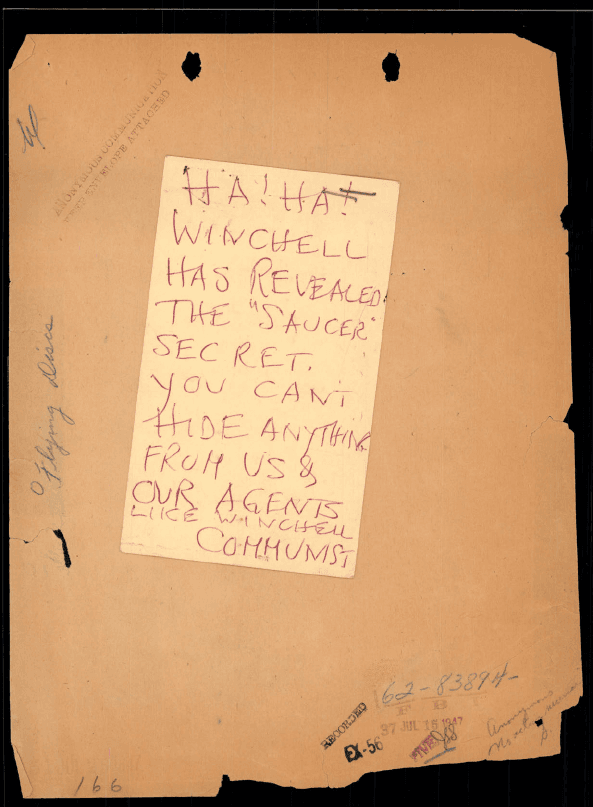 ANONYMOUS COMMUNICATION
ENVELOPE ATTACHED
HA! HA!
WINCHELL
HAS REVEALED
THE "SAUCER"
SECRET.
YOU CANT
HIDE ANYTHING
FROM US &
OUR AGENTS
LIKE WINCHELL
COMMUNIST
Flying Discs
62-83894-
F B I
RECORDED
37 JUL 15 1947
EX-56
Anonymous
166